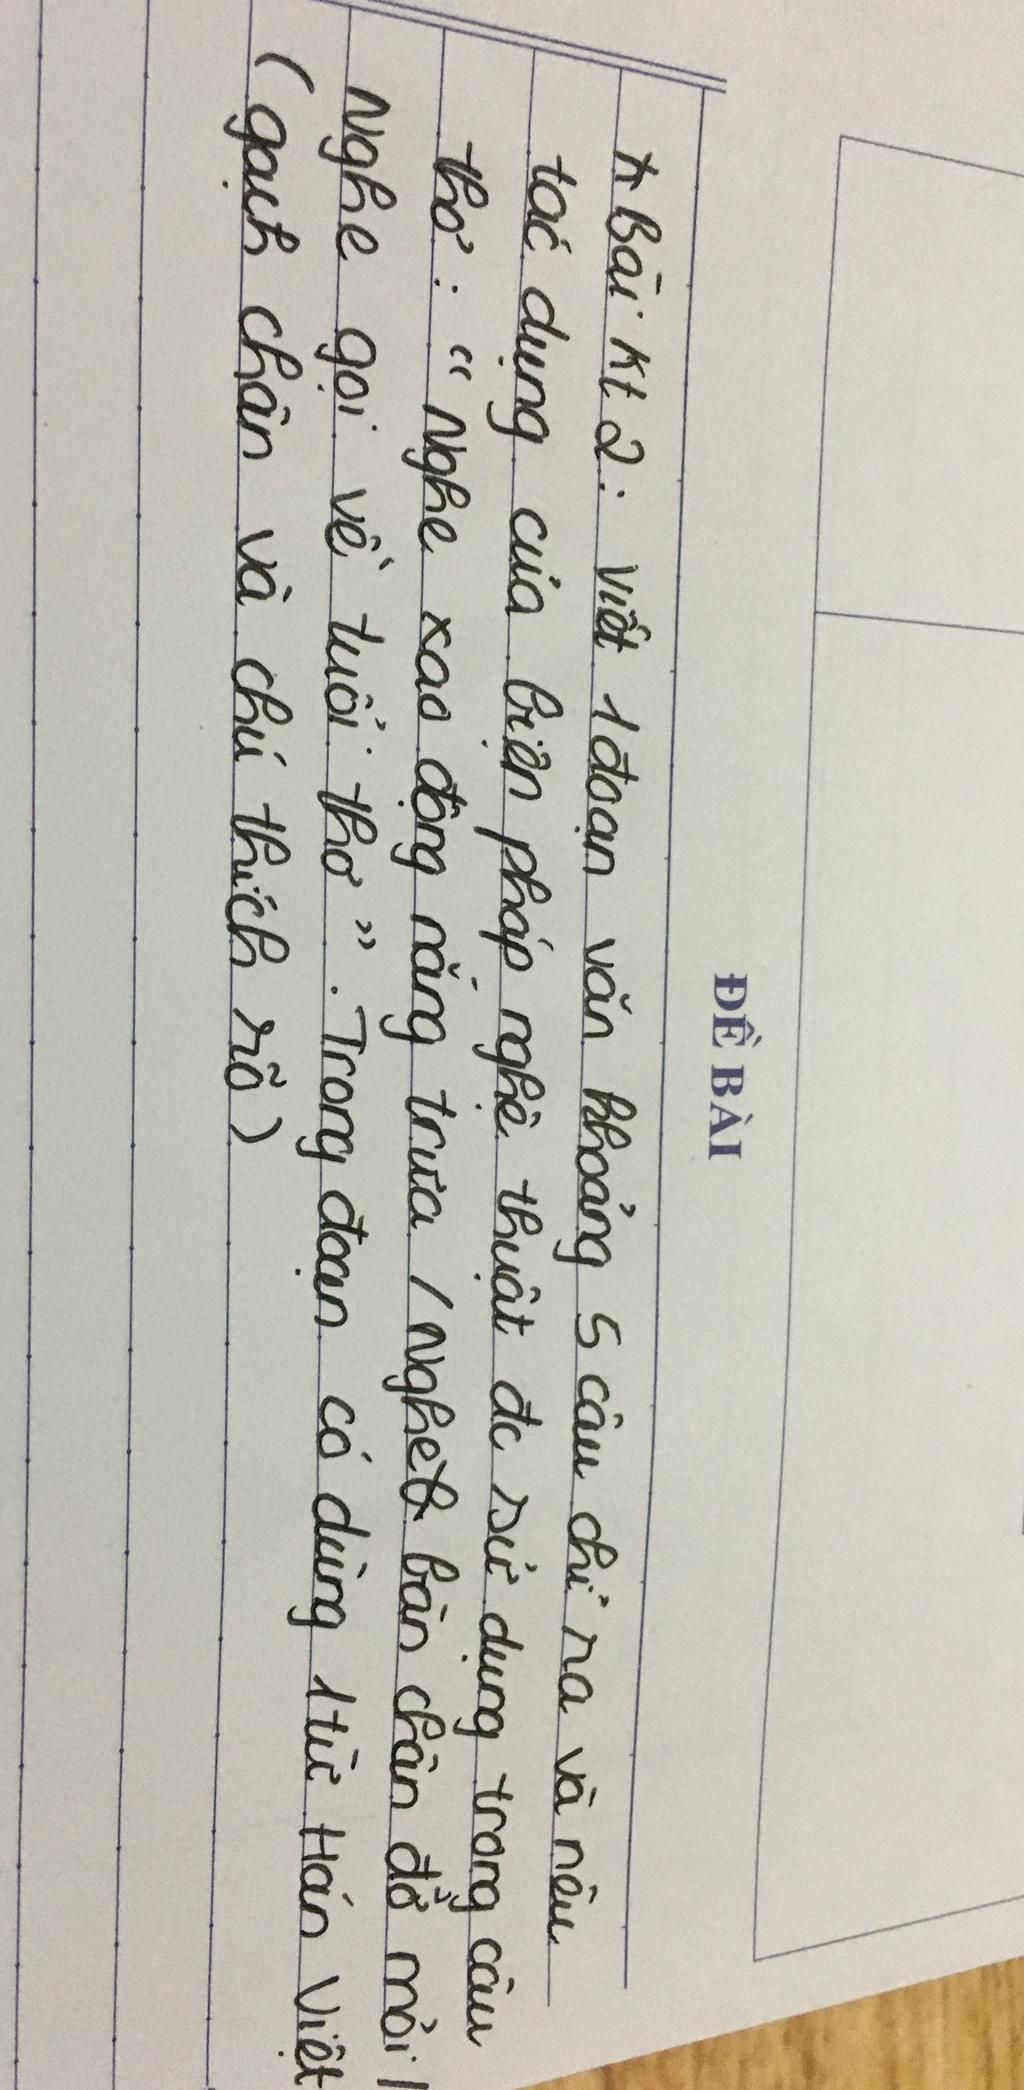 ĐỀ BÀI
* Bài kt 2: Viết 1 đoạn văn khoảng 5 câu chỉ ra và nêu
tác dụng của biện pháp nghệ thuật đc sử dụng trong câu
thơ: "Nghe xao động nắng trưa / Nghe bàn chân đỡ mỏi /
Nghe gọi về tuổi thơ". Trong đoạn có dùng 1 từ Hán Việt
(gạch chân và chú thích rõ)